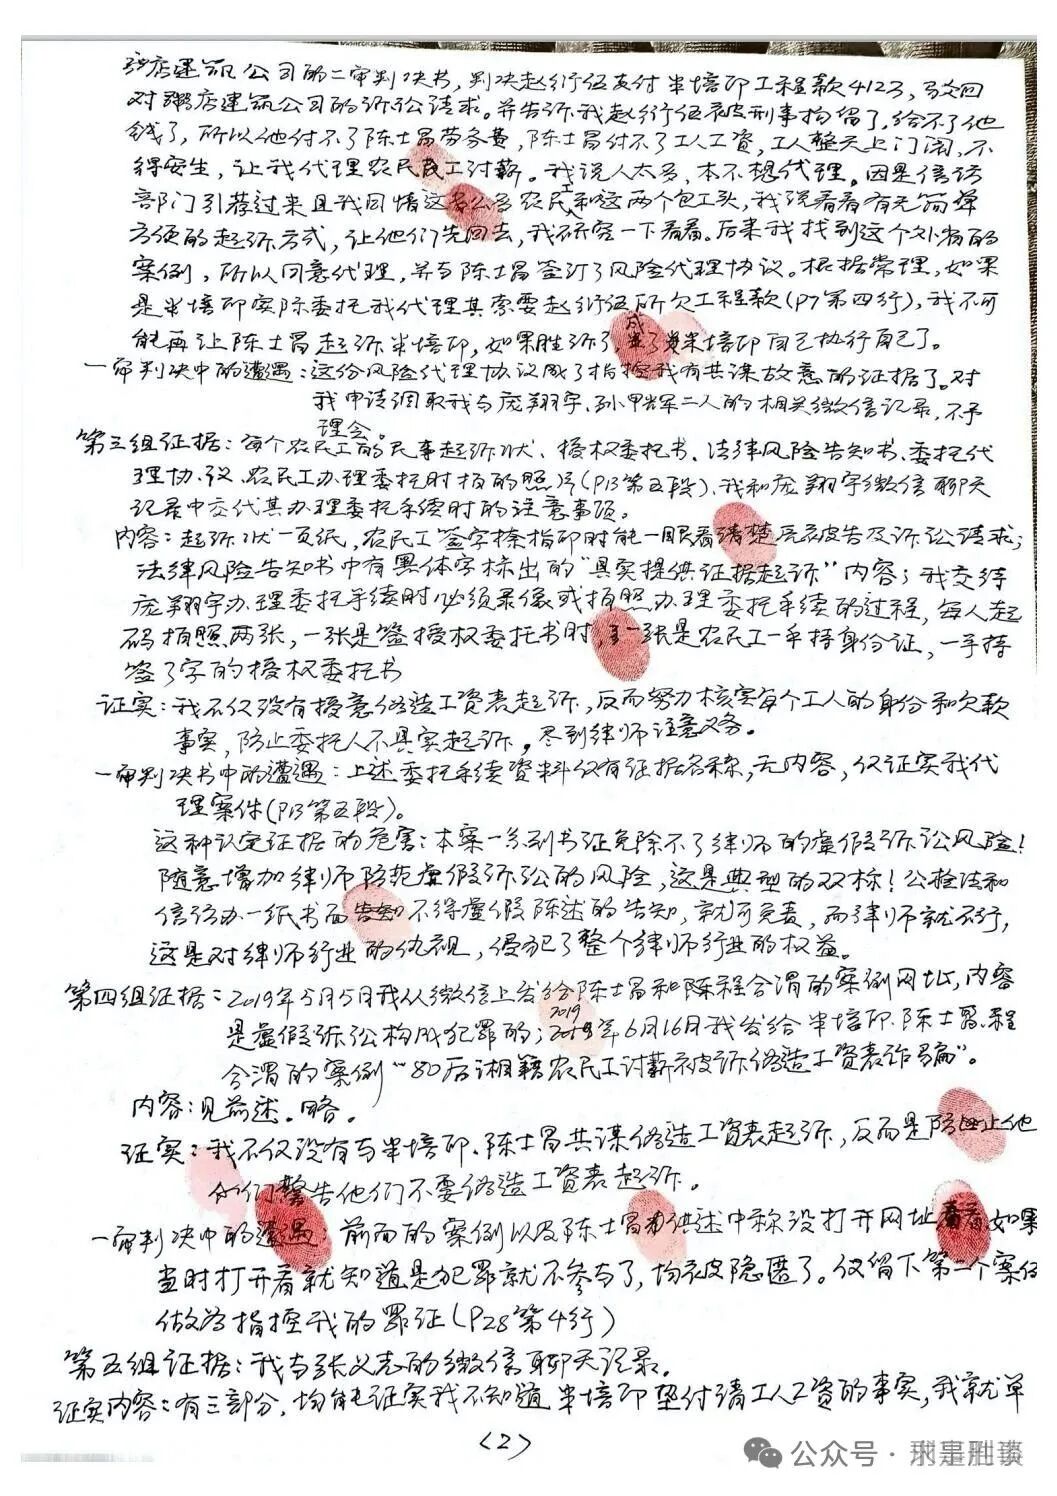 店建筑公司的二审判决书，判决赵衍伍支付半培印工程款4123，驳回
对 店建筑公司的诉讼请求。并告诉我赵衍伍被刑事拘留了，给不了他
钱了，所以他付不了陈士昌劳务费，陈士昌付不了工人工资，工人整天上门闹，不
得安生，让我代理农民工讨薪。我说人太多，本不想代理。因是信访
部门引荐过来且我同情这 农民工和这两个包工头，我说看看有无简单
方便的起诉方式，让他们先回去，我研究一下看看。后来我找到这个外省的
案例，所以同意代理，并与陈士昌签订了风险代理协议。根据常理，如果
是半培印实际委托我代理其索要赵衍伍所欠工程款(P7第四行)，我不可
能再让陈士昌起诉半培印，如果胜诉了，成了半培印自己执行自己了。
一审判决中的遭遇：这份风险代理协议成了指控我有共谋故意的证据了。对
我申请调取我与庞翔宇、孙甲 军二人的相关微信记录，不予
理会。
第三组证据：每个农民工的民事起诉状、授权委托书、法律风险告知书、委托代
理协议、农民工办理委托时拍的照片(P13第五段)、我和庞翔宇微信聊天
记录中交代其办理委托手续时的注意事项。
内容：起诉状一页纸，农民工签字捺指印时能一眼看清楚 被告及诉讼请求；
法律风险告知书中有黑体字标出的“真实提供证据起诉”内容；我交待
庞翔宇办理委托手续时必须录像或拍照办理委托手续的过程，每人起
码拍照两张，一张是签授权委托书时，一张是农民工一手持身份证，一手持
签了字的授权委托书
证实：我不仅没有授意伪造工资表起诉，反而努力核实每个工人的身份和欠款
事实，防止委托人不真实起诉。尽到律师注意义务。
一审判决书中的遭遇：上述委托手续资料仅有证据名称，无内容，仅证实我代
理案件(P13第五段)。
这种认定证据的危害：本案一系列书证免除不了律师的虚假诉讼风险！
随意增加律师防范虚假诉讼的风险，这是典型的双标！公检法和
信访办一纸书面告知不得虚假陈述的告知，就可免责，而律师就不行，
这是对律师行业的仇视，侵犯了整个律师行业的权益。
第四组证据：2019年5月5日我从微信上发给陈士昌和陈程合渭的案例网址，内容
是虚假诉讼构成犯罪的；2019年6月16日我发给半培印、陈士昌、程
合渭的案例“80后湘籍农民工讨薪被诉伪造工资表诈骗”。
内容：见前述。略。
证实：我不仅没有与半培印、陈士昌共谋伪造工资表起诉，反而是防止他
们警告他们不要伪造工资表起诉。
一审判决中的遭遇：前面的案例以及陈士昌供述中称没打开网址看看，如果
当时打开看就知道是犯罪就不参与了，均被隐匿了。仅留下第二个案例
做为指控我的罪证(P28第4行)
第五组证据：我与张义志的微信聊天记录。
证实内容：有三部分，均能证实我不知道半培印垫付清工人工资的事实，我就单
(2)
公众号·刑事胜谈